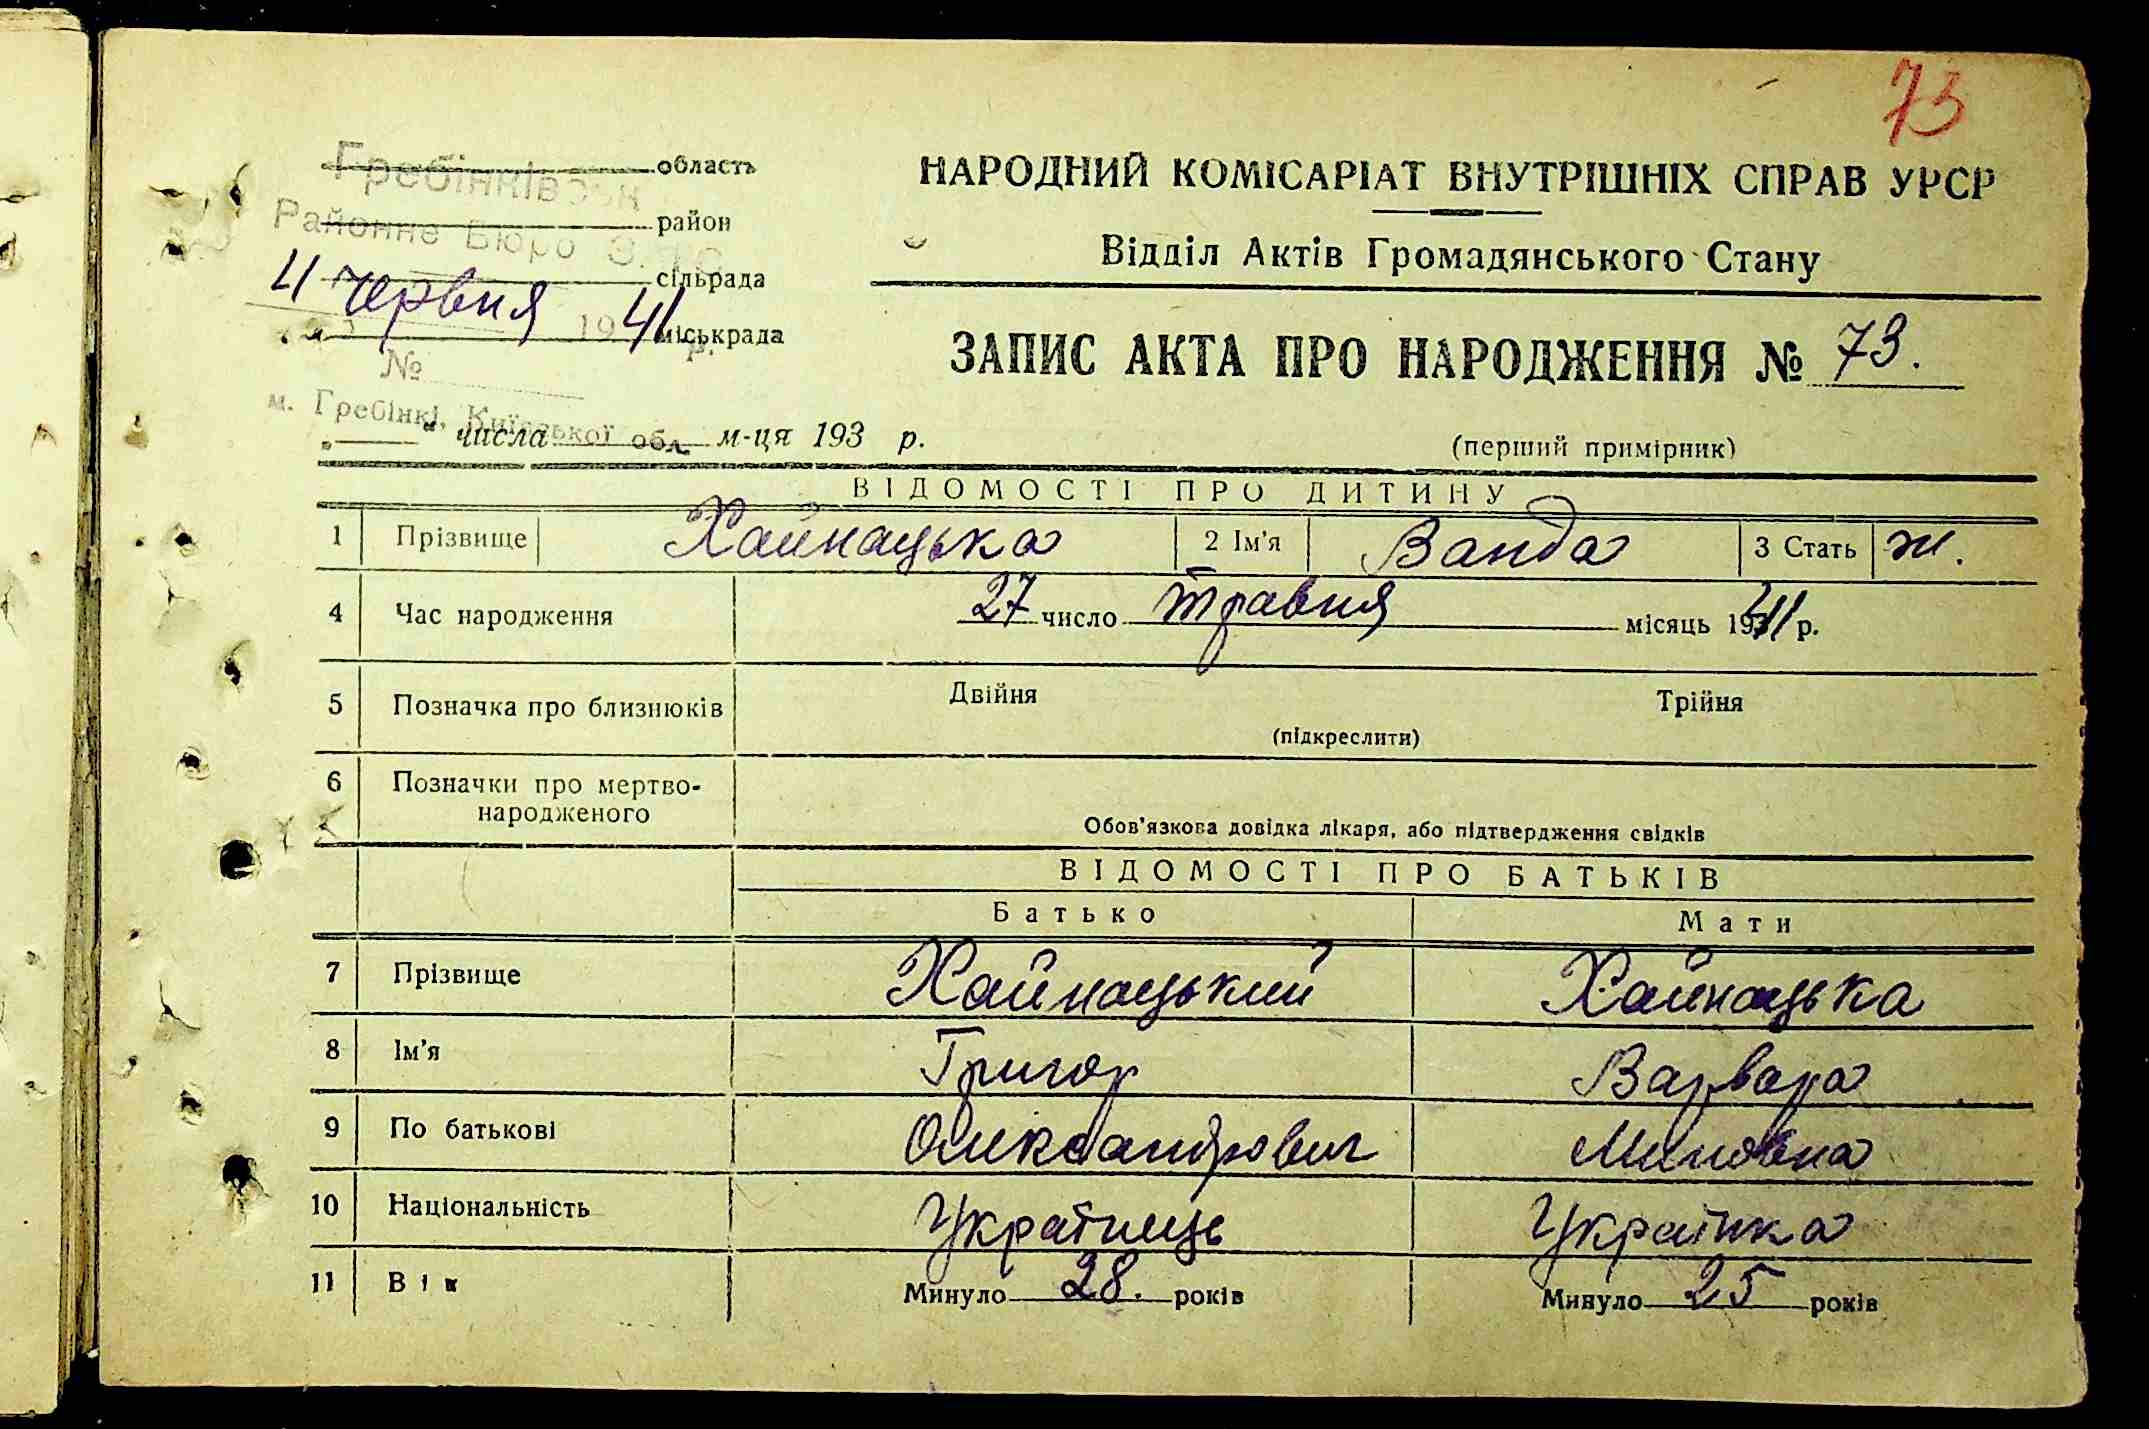 73
Гребінківськ
область
Районне Бюро З.А.Г.С.
район
сільрада
4 червня 1941 р.
міськрада
№
м. Гребінкі, Київської обл.
„ “ числа м-ця 193 р.
НАРОДНИЙ КОМІСАРІАТ ВНУТРІШНІХ СПРАВ УРСР
Відділ Актів Громадянського Стану
ЗАПИС АКТА ПРО НАРОДЖЕННЯ № 73.
(перший примірник)
ВІДОМОСТІ ПРО ДИТИНУ
1 Прізвище Хайнацька 2 Ім'я Ванда 3 Стать ж.
4 Час народження 27 число травня місяць 1941 р.
5 Позначка про близнюків Двійня Трійня
(підкреслити)
6 Позначки про мертво-
народженого
Обов'язкова довідка лікаря, або підтвердження свідків
ВІДОМОСТІ ПРО БАТЬКІВ
Батько Мати
7 Прізвище Хайнацький Хайнацька
8 Ім'я Григор Варвара
9 По батькові Олександрович Миновна
10 Національність Українець Українка
11 Вік Минуло 28. років Минуло 25 років